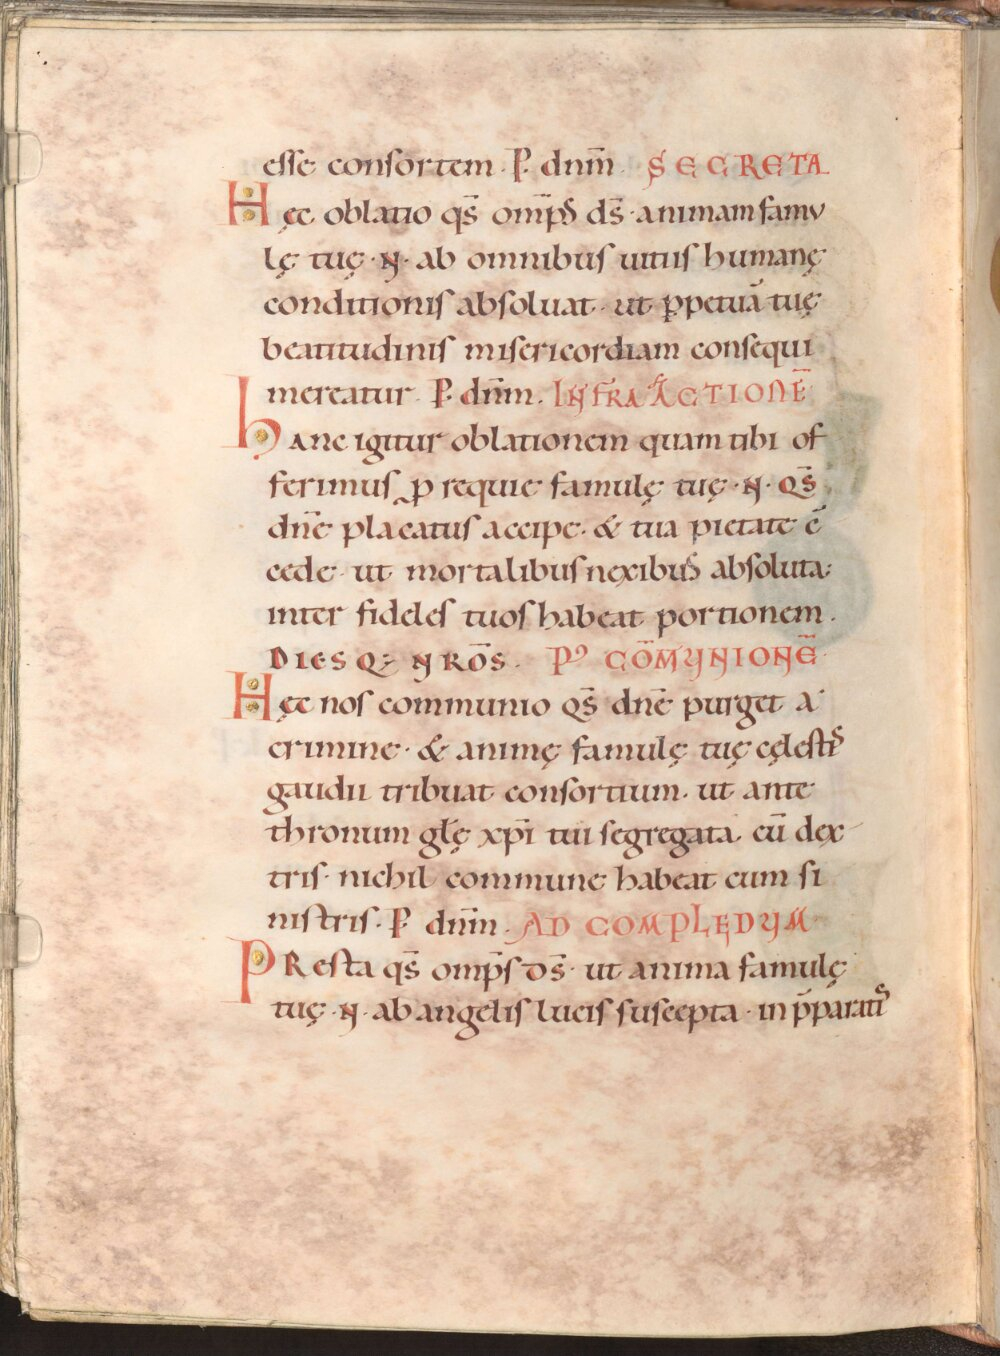 esse consortem. P. dn̄m̄ SECRETA
Hęc oblatio qs̄ omp̄s ds̄ · animam famu
lę tuę · N · ab omnibus uitiis humanę
conditionis absoluat · ut ꝑpetuā tuę
beatitudinis misericordiam consequi
mereatur. P. dn̄m. INFRA ACTIONĒ
hanc igitur oblationem quam tibi of
ferimus ꝓ requie famulę tuę · N · Qs̄
dn̄e placatus accipe · & tua pietate c̄
cede · ut mortalibus nexibus absoluta
inter fideles tuos habeat portionem.
DIESQ; NROS̄. Pꝰ COM̄MUNIONĒ
Hęc nos communio Qs̄ dn̄e purget a
crimine · & animę famulę tuę cęlestis
gaudii tribuat consortium · ut ante
thronum gl̄ę xp̄i tui segregata cū dex
tris · nichil commune habeat cum si
nistris. P. dn̄m. AD COMPLEDUM
PResta qs̄ omp̄s Ds̄ · ut anima famulę
tuę · N · ab angelis lucis suscepta · in p̄paratis